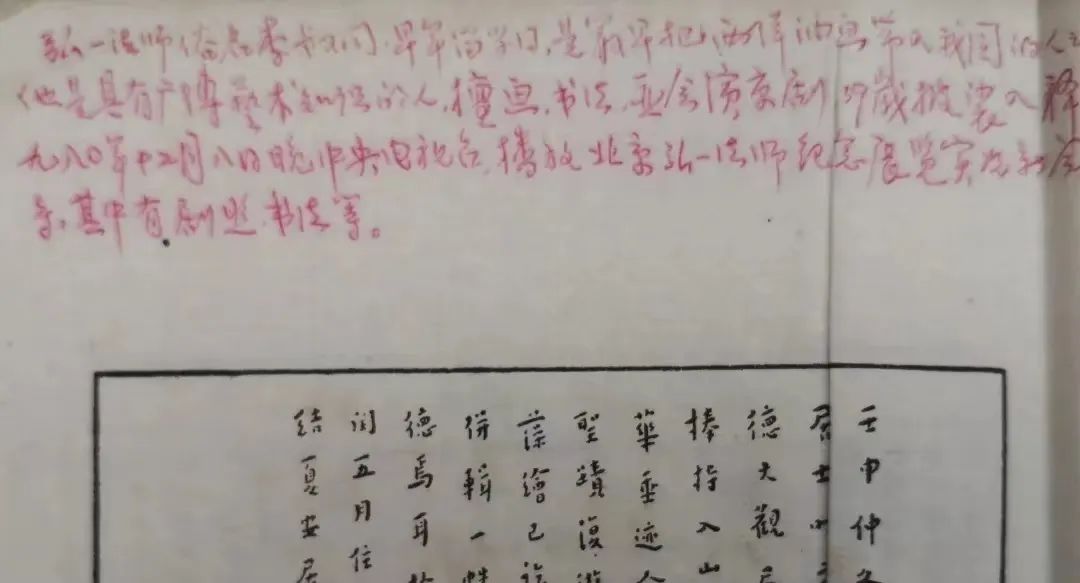 弘一法师俗名李叔同.早年留学日,是最早把西洋油画带入我国的人之
他是具有广博艺术知识的人.擅画.书法.亚会演京剧 39岁披裟入释
九八〇年十二月八日晚中央电视台播放北京弘一法师纪念展览实况新会
等,其中有剧照.书法等。
壬申仲
居士
德大觀
捧持入山
華垂迹
聖蹟復
藻繪已
併輯一
德焉耳
閏五月住
結夏安居